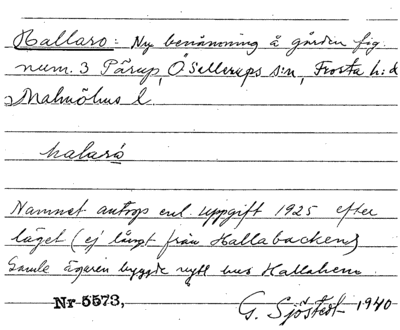 Hallaro: Ny benämning å gården fig.
num. 3 Pärup, Ö Sallerups s:n, Frosta h:d
Malmöhus l.
halaró
Namnet antogs enl. uppgift 1925 efter
läget (ej långt från Hallabacken)
Gamle ägaren byggde nytt hus Hallahem
Nr 5573,
G. Sjöstedt 1940